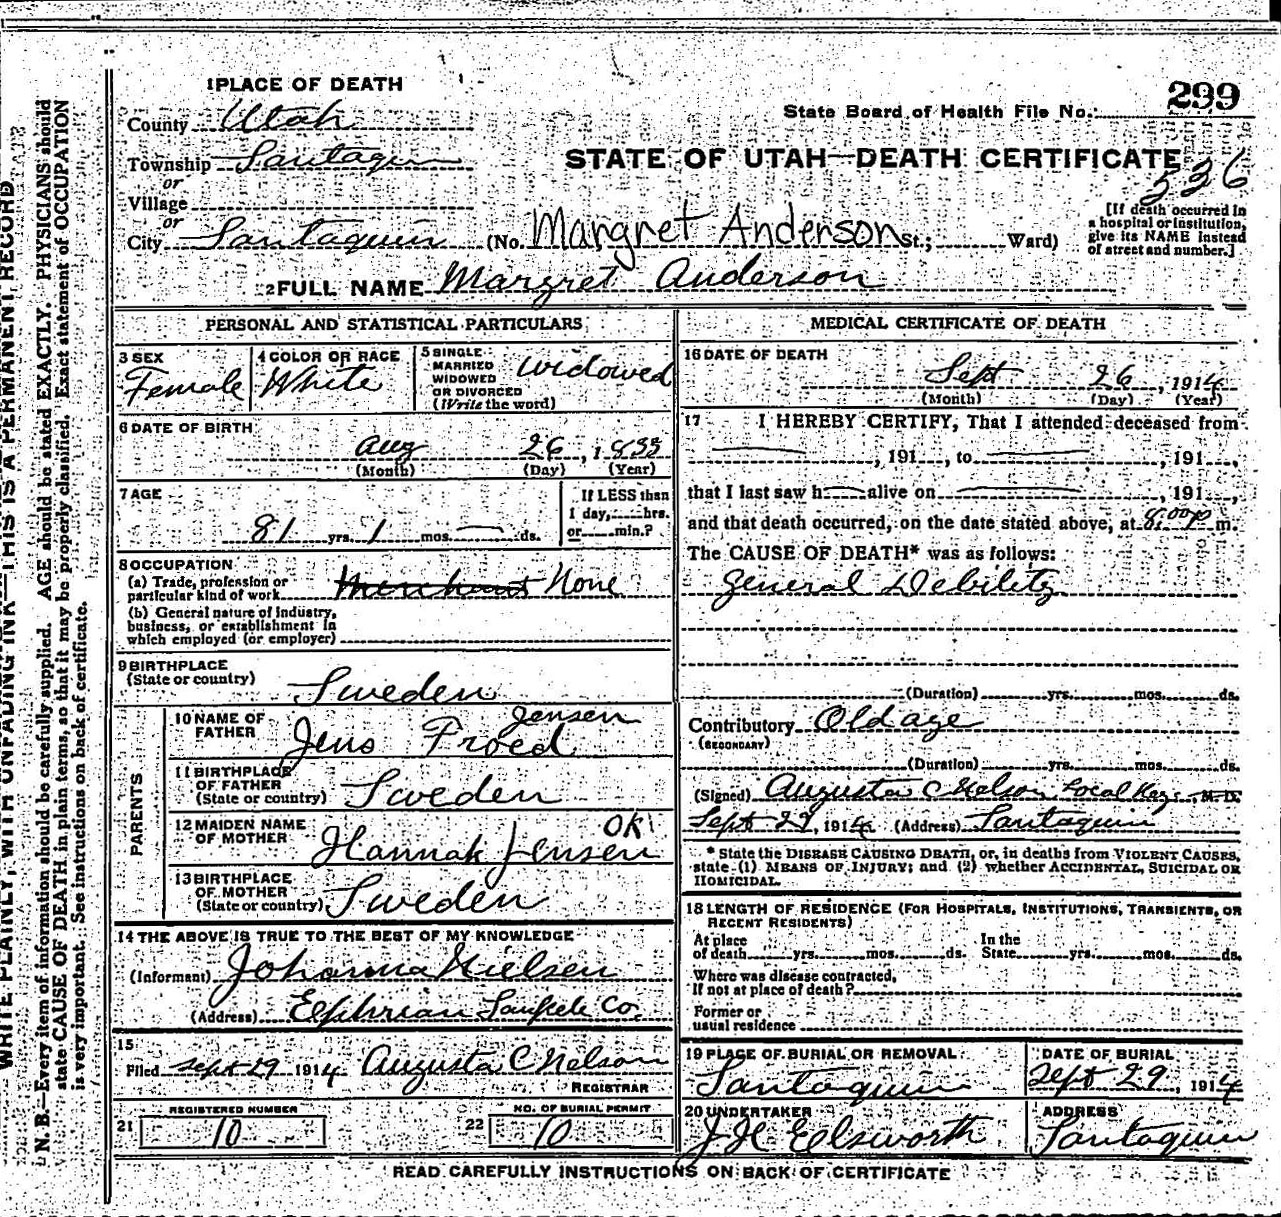 1 PLACE OF DEATH
299
State Board of Health File No.
County Utah
STATE OF UTAH—DEATH CERTIFICATE
536
Township Santaquin
or
Village
or
City Santaquin (No. Margret Anderson St.; Ward)
[If death occurred in
a hospital or institution,
give its NAME instead
of street and number.]
2 FULL NAME Margret Anderson
PERSONAL AND STATISTICAL PARTICULARS
3 SEX
Female
4 COLOR OR RACE
White
5 SINGLE
MARRIED
WIDOWED
OR DIVORCED
(Write the word)
Widowed
6 DATE OF BIRTH
Aug 26, 1833
(Month) (Day) (Year)
7 AGE
81 yrs. 1 mos. — ds.
If LESS than
1 day, hrs.
or min.?
8 OCCUPATION
(a) Trade, profession or
particular kind of work Merchant None
(b) General nature of industry,
business, or establishment in
which employed (or employer)
9 BIRTHPLACE
(State or country)
Sweden
PARENTS
10 NAME OF
FATHER
Jensen
Jens Froed
11 BIRTHPLACE
OF FATHER
(State or country) Sweden
12 MAIDEN NAME
OF MOTHER
OK
Hannah Jensen
13 BIRTHPLACE
OF MOTHER
(State or country) Sweden
14 THE ABOVE IS TRUE TO THE BEST OF MY KNOWLEDGE
(Informant) Johanna Nielsen
(Address) Ephrian Sanpete Co.
15
Filed Sept 29 1914 Augusta C Nelson
REGISTRAR
21 REGISTERED NUMBER
10
22 NO. OF BURIAL PERMIT
10
MEDICAL CERTIFICATE OF DEATH
16 DATE OF DEATH
Sept 26, 1914
(Month) (Day) (Year)
17 I HEREBY CERTIFY, That I attended deceased from
, 191 , to , 191 ,
that I last saw h alive on , 191 ,
and that death occurred, on the date stated above, at 8:00 P m.
The CAUSE OF DEATH* was as follows:
General Debility
(Duration) yrs. mos. ds.
Contributory Old age
(SECONDARY)
(Duration) yrs. mos. ds.
(Signed) Augusta C Nelson Local Reg., M. D.
Sept 29, 1914 (Address) Santaquin
* State the DISEASE CAUSING DEATH, or, in deaths from VIOLENT CAUSES,
state (1) MEANS OF INJURY; and (2) whether ACCIDENTAL, SUICIDAL OR
HOMICIDAL.
18 LENGTH OF RESIDENCE (FOR HOSPITALS, INSTITUTIONS, TRANSIENTS, OR
RECENT RESIDENTS)
At place
of death yrs. mos. ds.
In the
State yrs. mos. ds.
Where was disease contracted,
If not at place of death?
Former or
usual residence
19 PLACE OF BURIAL OR REMOVAL
Santaquin
DATE OF BURIAL
Sept 29, 1914
20 UNDERTAKER
J H Ellsworth
ADDRESS
Santaquin
READ CAREFULLY INSTRUCTIONS ON BACK OF CERTIFICATE
WRITE PLAINLY, WITH UNFADING INK—THIS IS A PERMANENT RECORD
N. B.—Every item of information should be carefully supplied. AGE should be stated EXACTLY. PHYSICIANS should
state CAUSE OF DEATH in plain terms, so that it may be properly classified. Exact statement of OCCUPATION
is very important. See instructions on back of certificate.